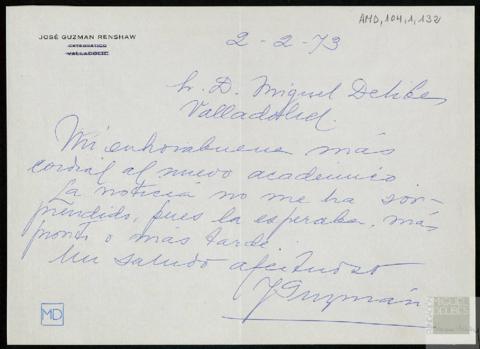 JOSÉ GUZMAN RENSHAW
CATEDRÁTICO
VALLADOLID
AMD,104,1,132
2-2-73
Sr. D. Miguel Delibes
Valladolid.
Mi enhorabuena más
cordial al nuevo académico.
La noticia no me ha sor-
prendido, pues la esperaba, más
pronto o más tarde.
Un saludo afectuoso
J Guzmán
MD
MIGUEL
DELIBES